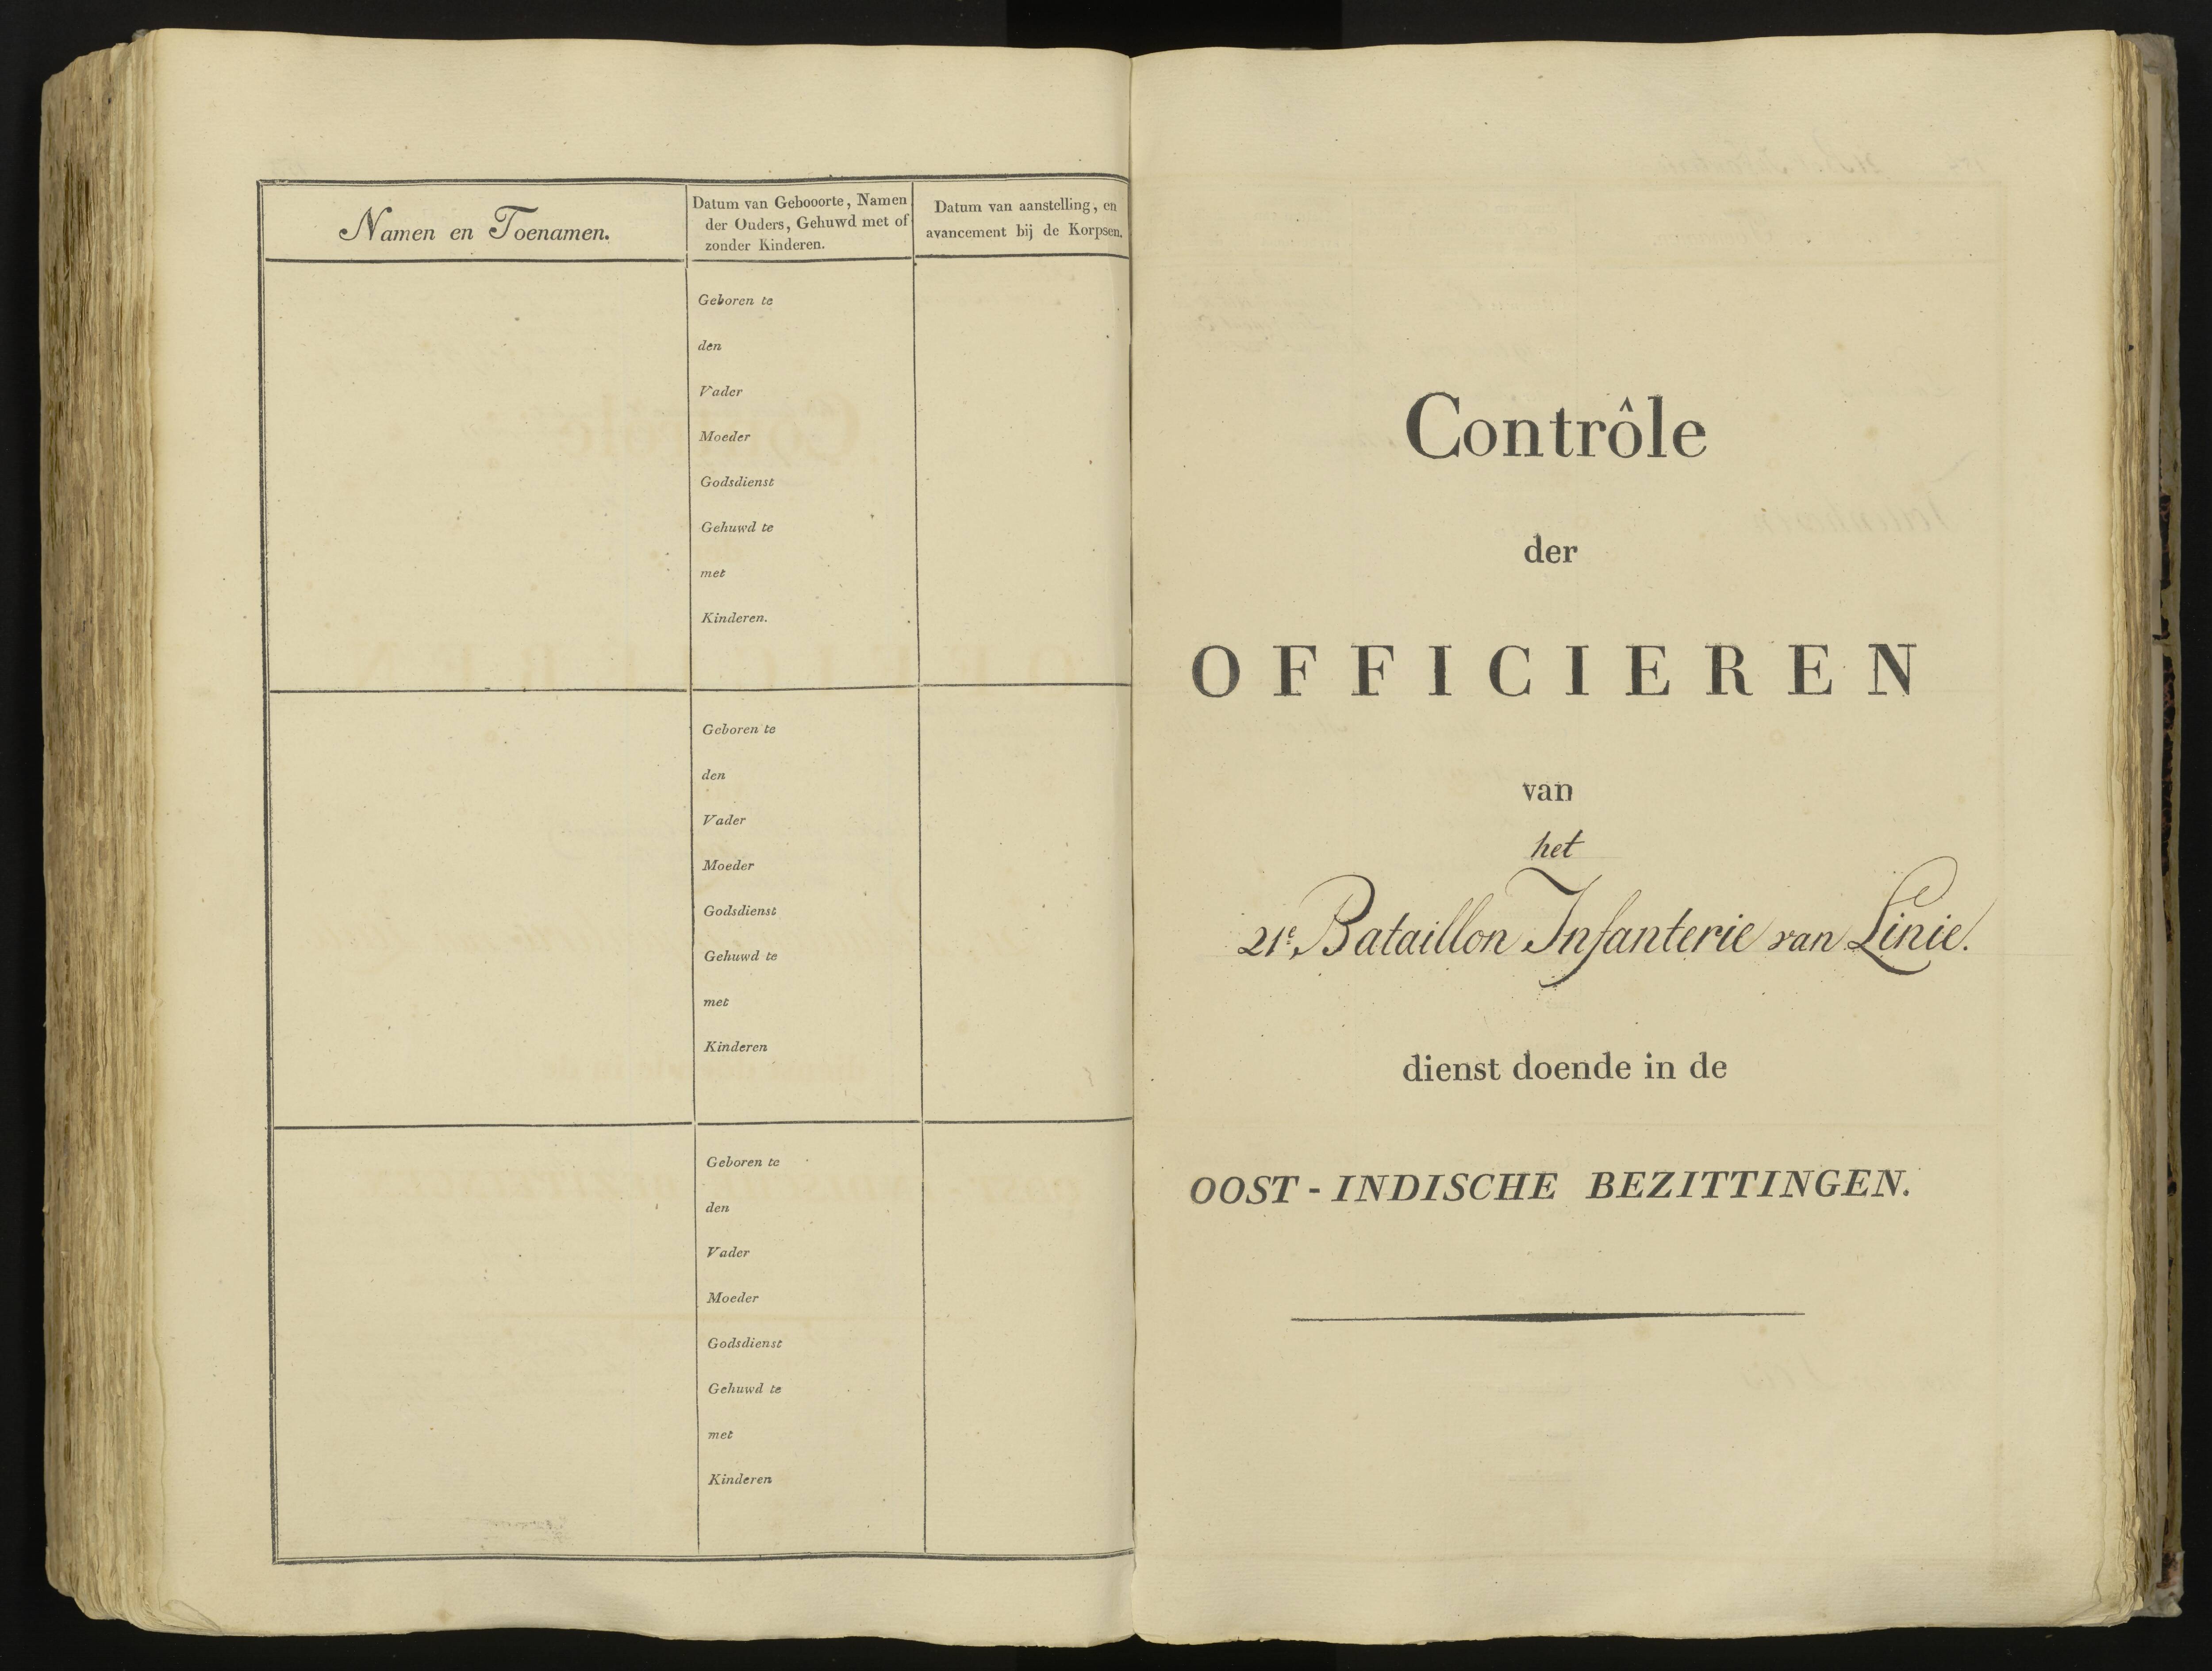 Namen en Toenamen.
Datum van Gebooorte, Namen
der Ouders, Gehuwd met of
zonder Kinderen.
Datum van aanstelling, en
avancement bij de Korpsen.
Geboren te
den
Vader
Moeder
Godsdienst
Gehuwd te
met
Kinderen.
Geboren te
den
Vader
Moeder
Godsdienst
Gehuwd te
met
Kinderen
Geboren te
den
Vader
Moeder
Godsdienst
Gehuwd te
met
Kinderen
Contrôle
der
OFFICIEREN
van
het
21e. Bataillon Infanterie van Linie.
dienst doende in de
OOST-INDISCHE BEZITTINGEN.